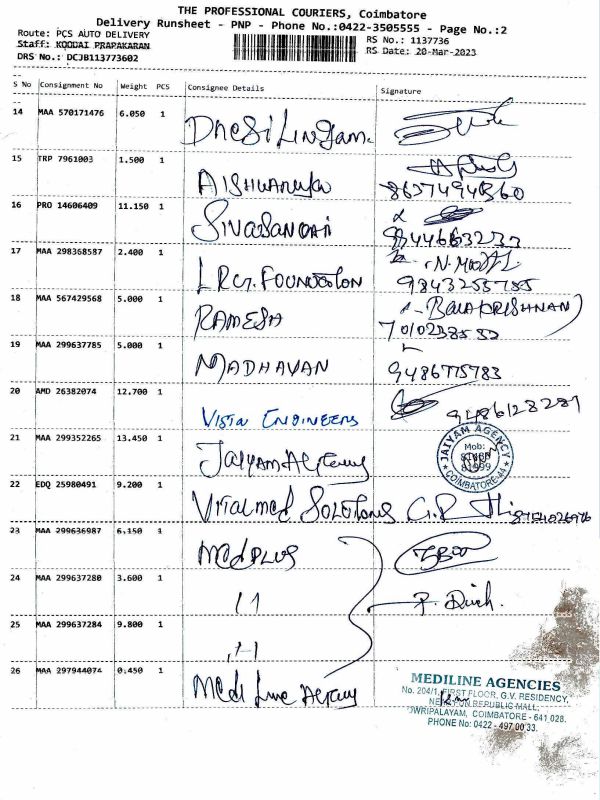 THE PROFESSIONAL COURIERS, Coimbatore
Delivery Runsheet - PNP - Phone No.:0422-3505555 - Page No.:2
Route: PCS AUTO DELIVERY
RS No.: 1137736
Staff: KOODAI PRAPAKARAN
RS Date: 20-Mar-2023
DRS No.: DCJB113773602
S No Consignment No Weight PCS Consignee Details Signature
14 MAA 570171476 6.050 1 Dhesilingam.
15 TRP 7961003 1.500 1 AISHWARYA
16 PRO 14606409 11.150 1 SIVASANKARI
17 MAA 298368587 2.400 1 LRG. FOUNDATION
9843255785
18 MAA 567429568 5.000 1 RAMESH BALAKRISHNAN
19 MAA 299637785 5.000 1 MADHAVAN 9486775783
20 AMD 26382074 12.700 1 VISTA ENGINEERS 9486128287
21 MAA 299352265 13.450 1 JAIYAM AGENCY
JAIYAM AGENCY
Mob:
COIMBATORE-44
22 EDQ 25980491 9.200 1 VITALMED SOLUTIONS
23 MAA 299636987 6.150 1 MEDPLUS
24 MAA 299637280 3.600 1 11
25 MAA 299637284 9.800 1 11
26 MAA 297944074 0.450 1 Medi Line Agency
MEDILINE AGENCIES
No. 204/1, FIRST FLOOR, G.V. RESIDENCY,
REPUBLIC MALL,
SOWRIPALAYAM, COIMBATORE - 641 028.
PHONE No: 0422 - 497 00 33.